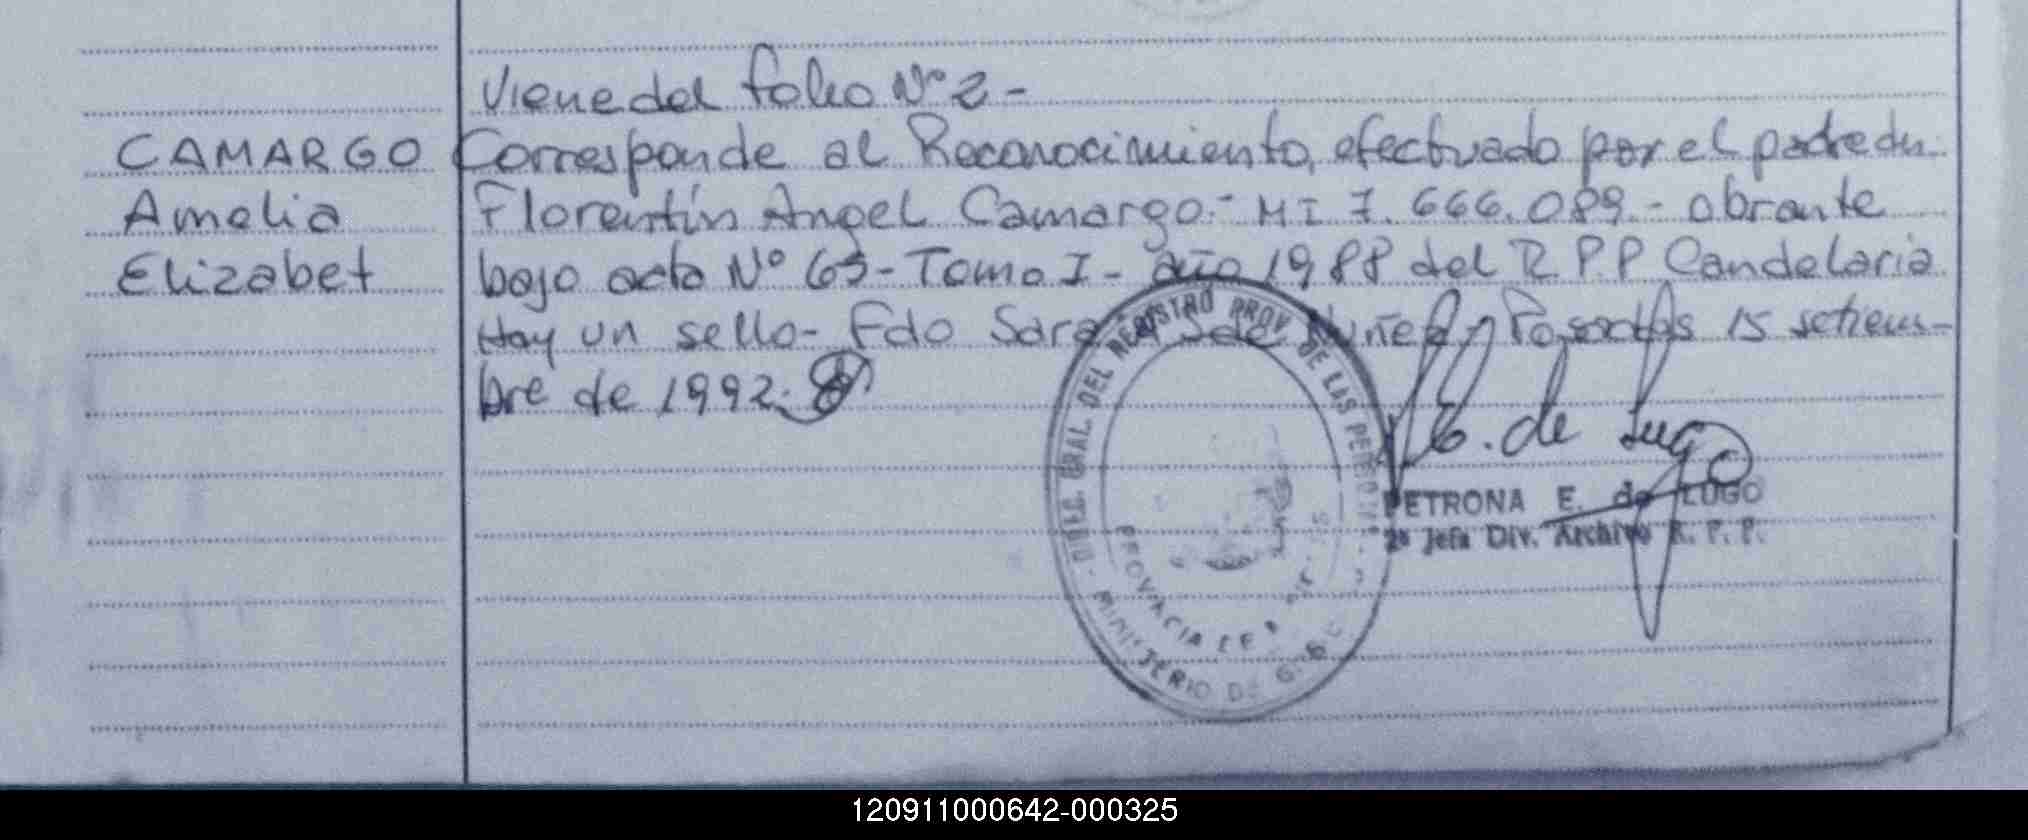 Viene del folio Nº 2 -
CAMARGO Corresponde al Reconocimiento, efectuado por el padre
Amelia Florentín Angel Camargo.- M I 7.666.089.- obrante
Elizabet bajo acta Nº 63- Tomo I - año 1988 del R.P.P Candelaria
Hay un sello- Fdo Sara de Nuñez Posadas 15 setiem-
bre de 1992.
DIREC. GRAL. DEL REGISTRO PROV. DE LAS PERSONAS
PROVINCIA DE
MINISTERIO DE
E. de Lugo
PETRONA E. de LUGO
2ª Jefa Div. Archivo R. P. P.
120911000642-000325